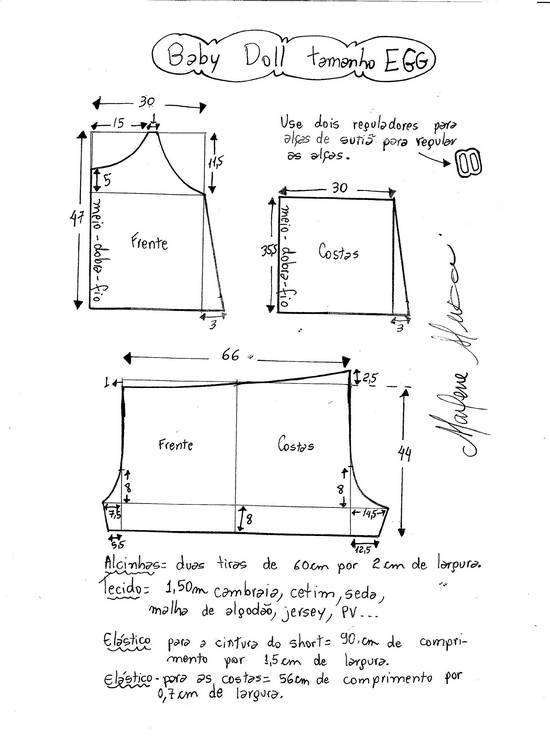 Baby Doll tamanho EGG
30
15
1
11,5
5
47
meio-dobra-fio
Frente
3
Use dois reguladores para
alças de sutiã para regular
as alças.
30
35,5
meio-dobra-fio
Costas
3
Marlene Mukai
66
1
2,5
Frente
Costas
44
8
8
7,5
8
14,5
5,5
12,5
Alcinhas= duas tiras de 60cm por 2cm de largura.
Tecido= 1,50m cambraia, cetim, seda,
malha de algodão, jersey, PV...
Elástico para a cintura do short= 90cm de compri-
mento por 1,5cm de largura.
Elástico-para as costas= 56cm de comprimento por
0,7cm de largura.